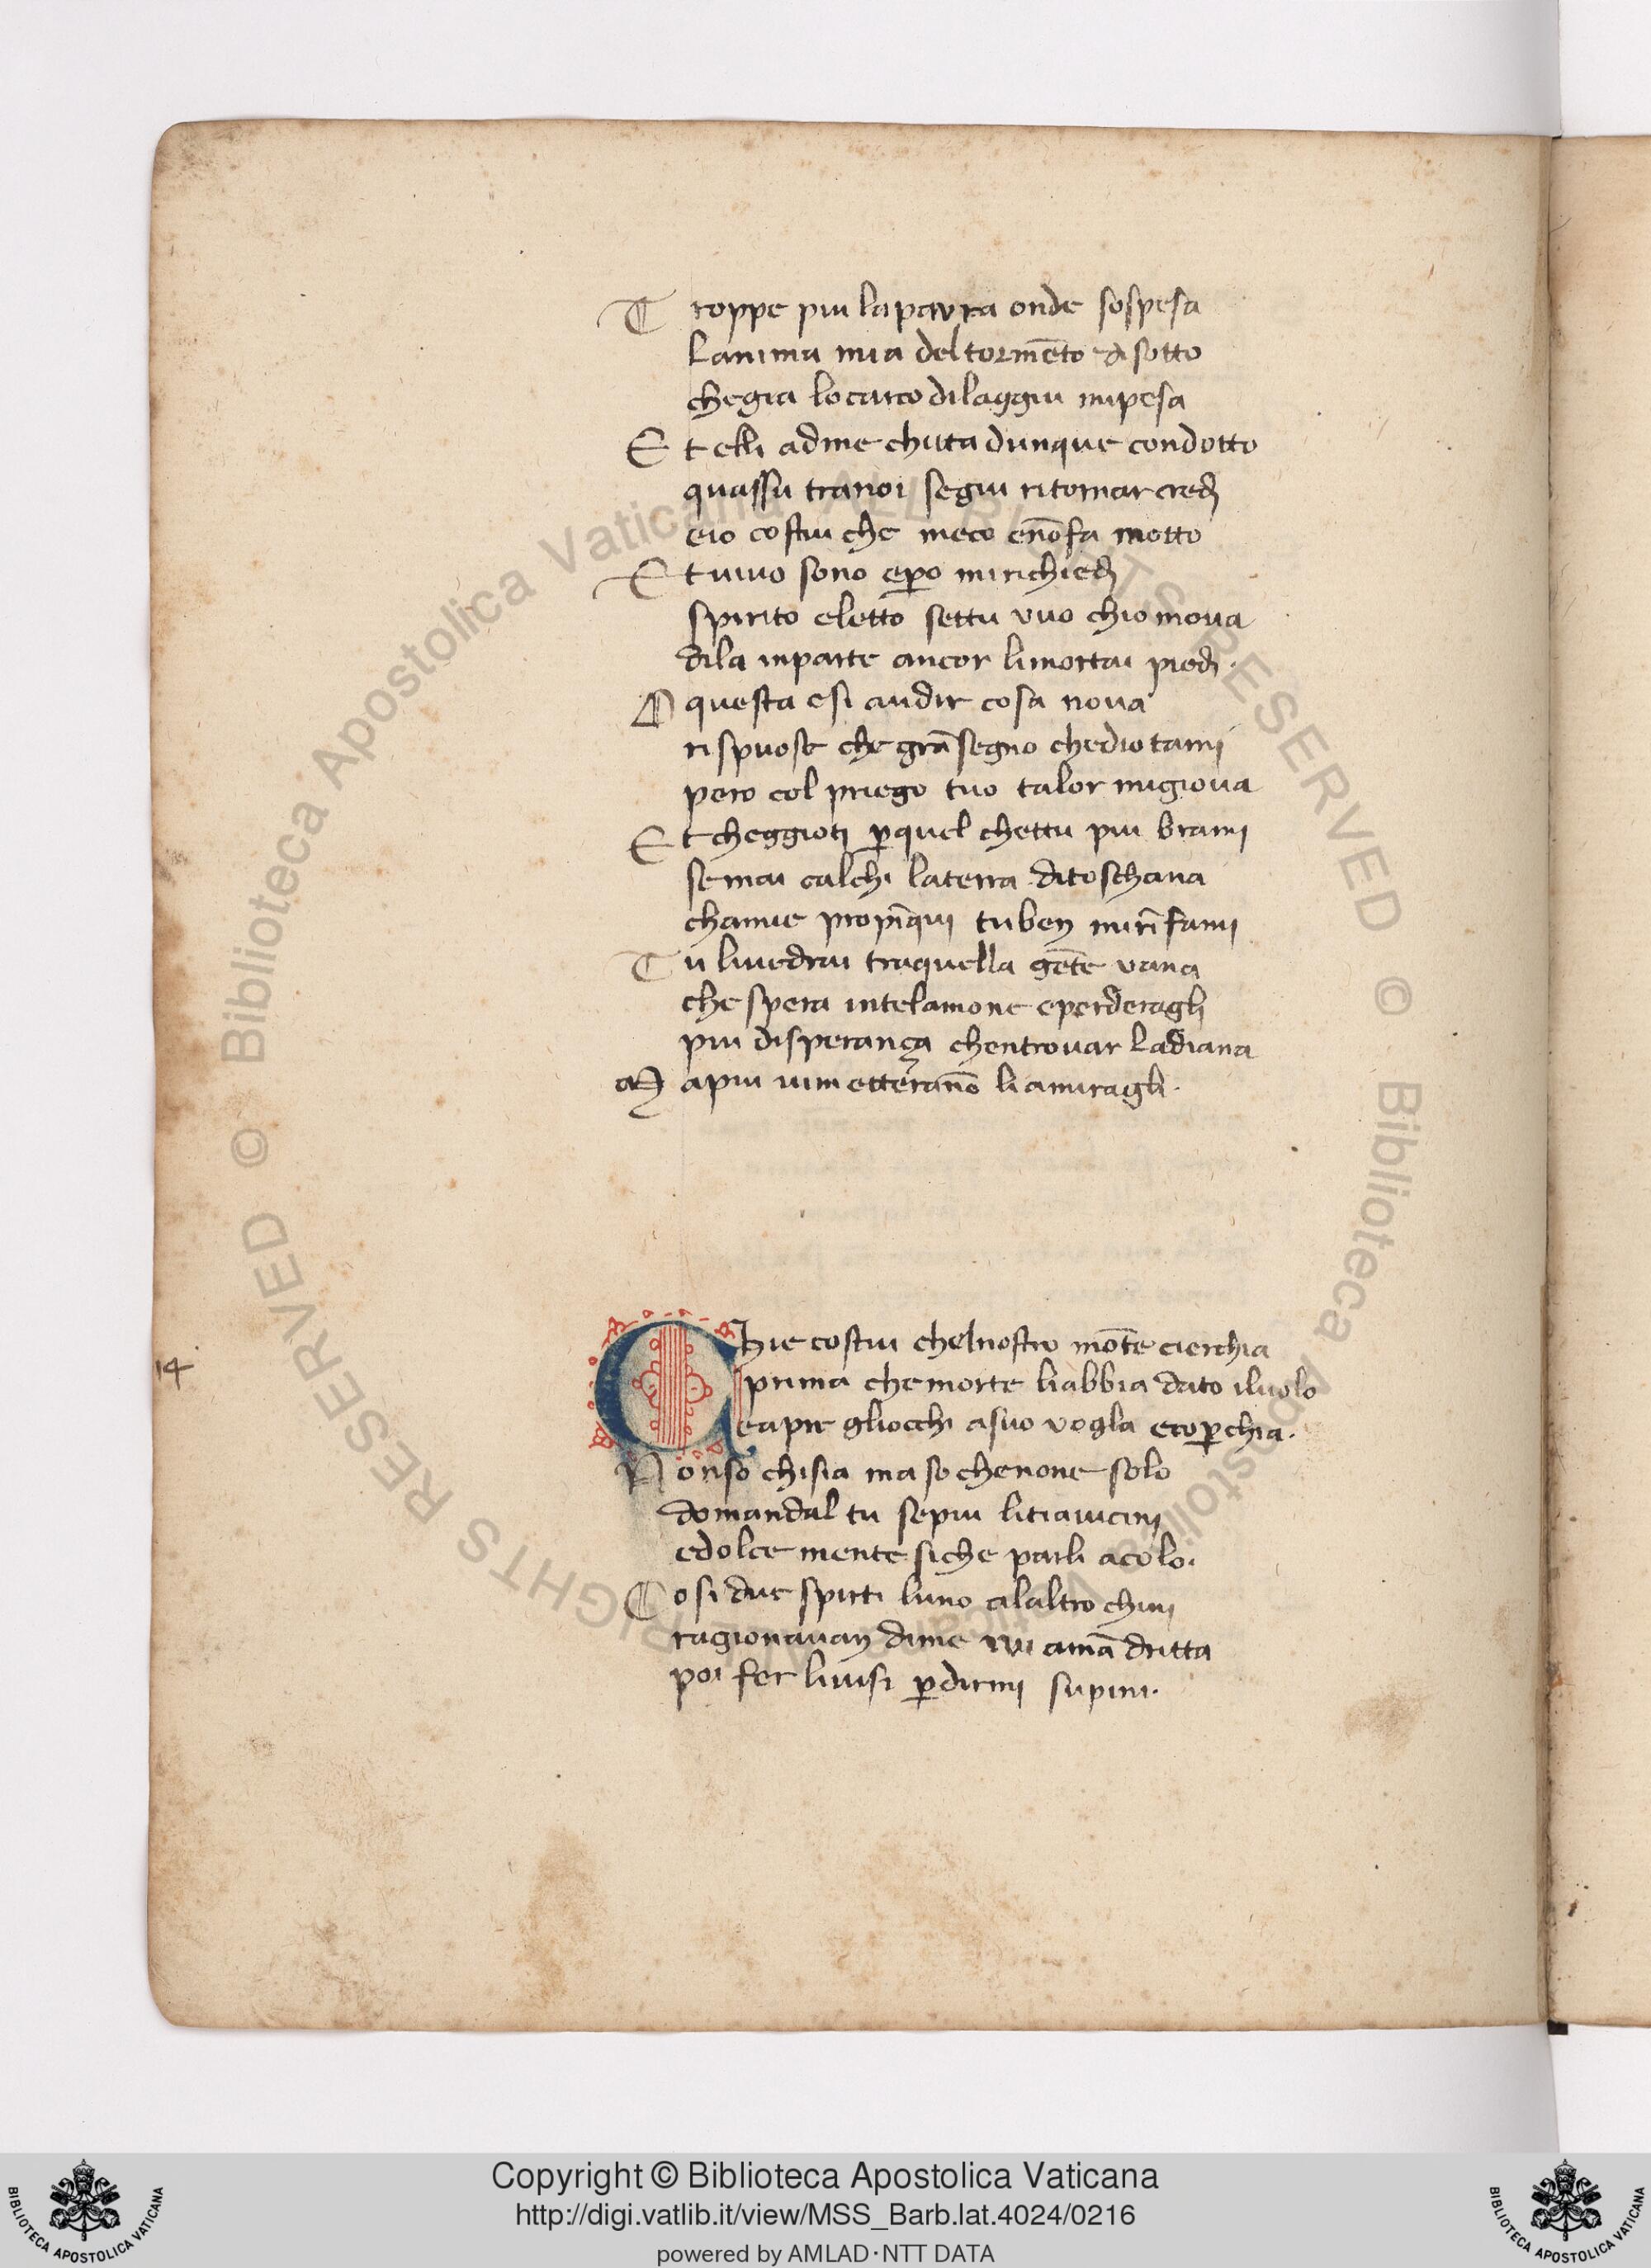 T roppe piu lapavra onde sospesa
Lanima mia deltormēto di sotto
chegia lo carco dilaggiu mipesa
E t elli adme chitta dunque condotto
quassu tranoi segiu ritornar credj
eio costui che meco enōfa motto
E t uiuo sono eꝑo mirichiedj
spirito eletto settu vuo chio moua
dila inparte ancor limortai piedj.
O questa esi audir cosa noua
rispuose che grā segno chedio tami
pero col priego tuo talor migioua
E t cheggioti ꝑquel chettu piu bramj
semai calchi laterra ditoschana
chamie propīqui tuben mirīfamj
T u liuedrai traquella gēte vana
che spera intelamone eperderaglj
piu disperança chentrouar Ladiana
M apiu uimetterānō liamiragli.
14
C hie costui chelnostro mōte cierchia
prima che morte liabbia dato iluolo
eapre gliocchi asuo vogla ecoꝑchia.
N onso chisia ma so chenone solo
domandal tu sepiu litiauicinj
edolce mente siche parli acolo.
C osi due spirti luno alaltro chinj
ragionauan dime iui amā dritta
poi fer liuisi ꝑdirmj supini.
Copyright © Biblioteca Apostolica Vaticana
http://digi.vatlib.it/view/MSS_Barb.lat.4024/0216
powered by AMLAD·NTT DATA
BIBLIOTECA APOSTOLICA VATICANA
BIBLIOTECA APOSTOLICA VATICANA
© Biblioteca Apostolica Vaticana ALL RIGHTS RESERVED © Biblioteca Apostolica Vaticana ALL RIGHTS RESERVED